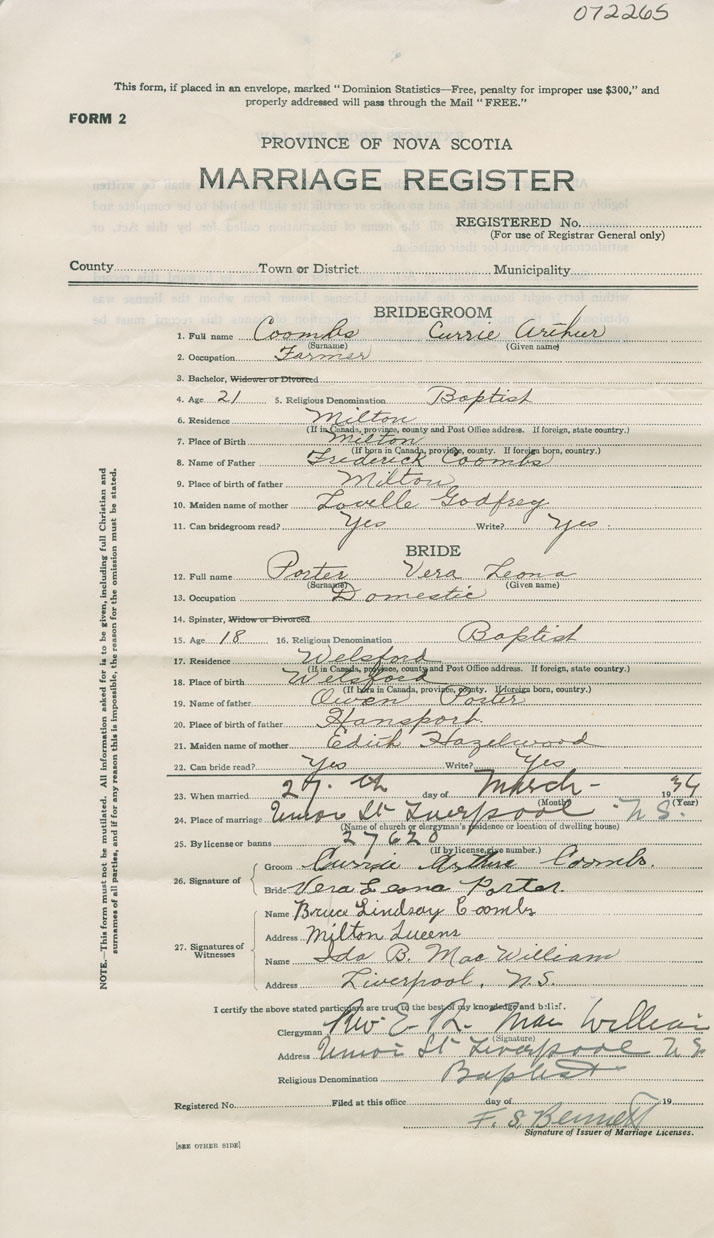 072265
This form, if placed in an envelope, marked "Dominion Statistics—Free, penalty for improper use $300," and
properly addressed will pass through the Mail "FREE."
FORM 2
PROVINCE OF NOVA SCOTIA
MARRIAGE REGISTER
REGISTERED No.
(For use of Registrar General only)
County Town or District Municipality
BRIDEGROOM
1. Full name Coombs Currie Arthur
(Surname) (Given name)
2. Occupation Farmer
3. Bachelor, Widower or Divorced
4. Age 21 5. Religious Denomination Baptist
6. Residence Milton
(If in Canada, province, county and Post Office address. If foreign, state country.)
7. Place of Birth Milton
(If born in Canada, province, county. If foreign born, country.)
8. Name of Father Frederick Coombs
9. Place of birth of father Milton
10. Maiden name of mother Lovelle Godfrey
11. Can bridegroom read? Yes Write? Yes
BRIDE
12. Full name Porter Vera Leona
(Surname) (Given name)
13. Occupation Domestic
14. Spinster, Widow or Divorced
15. Age 18 16. Religious Denomination Baptist
17. Residence Welsford
(If in Canada, province, county and Post Office address. If foreign, state country.)
18. Place of birth Welsford
(If born in Canada, province, county. If foreign born, country.)
19. Name of father Owen Porter
20. Place of birth of father Hansport.
21. Maiden name of mother Edith Hazelwood
22. Can bride read? Yes Write? Yes
23. When married 27th day of March 1934
(Month) (Year)
24. Place of marriage Union St Liverpool N.S.
(Name of church or clergyman's residence or location of dwelling house)
25. By license or banns 27620
(If by license, give number.)
26. Signature of Groom Currie Arthur Coombs.
Bride Vera Leona Porter.
27. Signatures of Witnesses Name Bruce Lindsay Coombs
Address Milton Queens
Name Ida B. MacWilliam
Address Liverpool, N.S.
I certify the above stated particulars are true to the best of my knowledge and belief.
Clergyman Rev. E. R. MacWilliam
(Signature)
Address Union St Liverpool N.S.
Religious Denomination Baptist
Registered No. Filed at this office day of 19
F. S. Bennett
Signature of Issuer of Marriage Licenses.
[SEE OTHER SIDE]
NOTE.—This form must not be mutilated. All information asked for is to be given, including full Christian and
surnames of all parties, and if for any reason this is impossible, the reason for the omission must be stated.